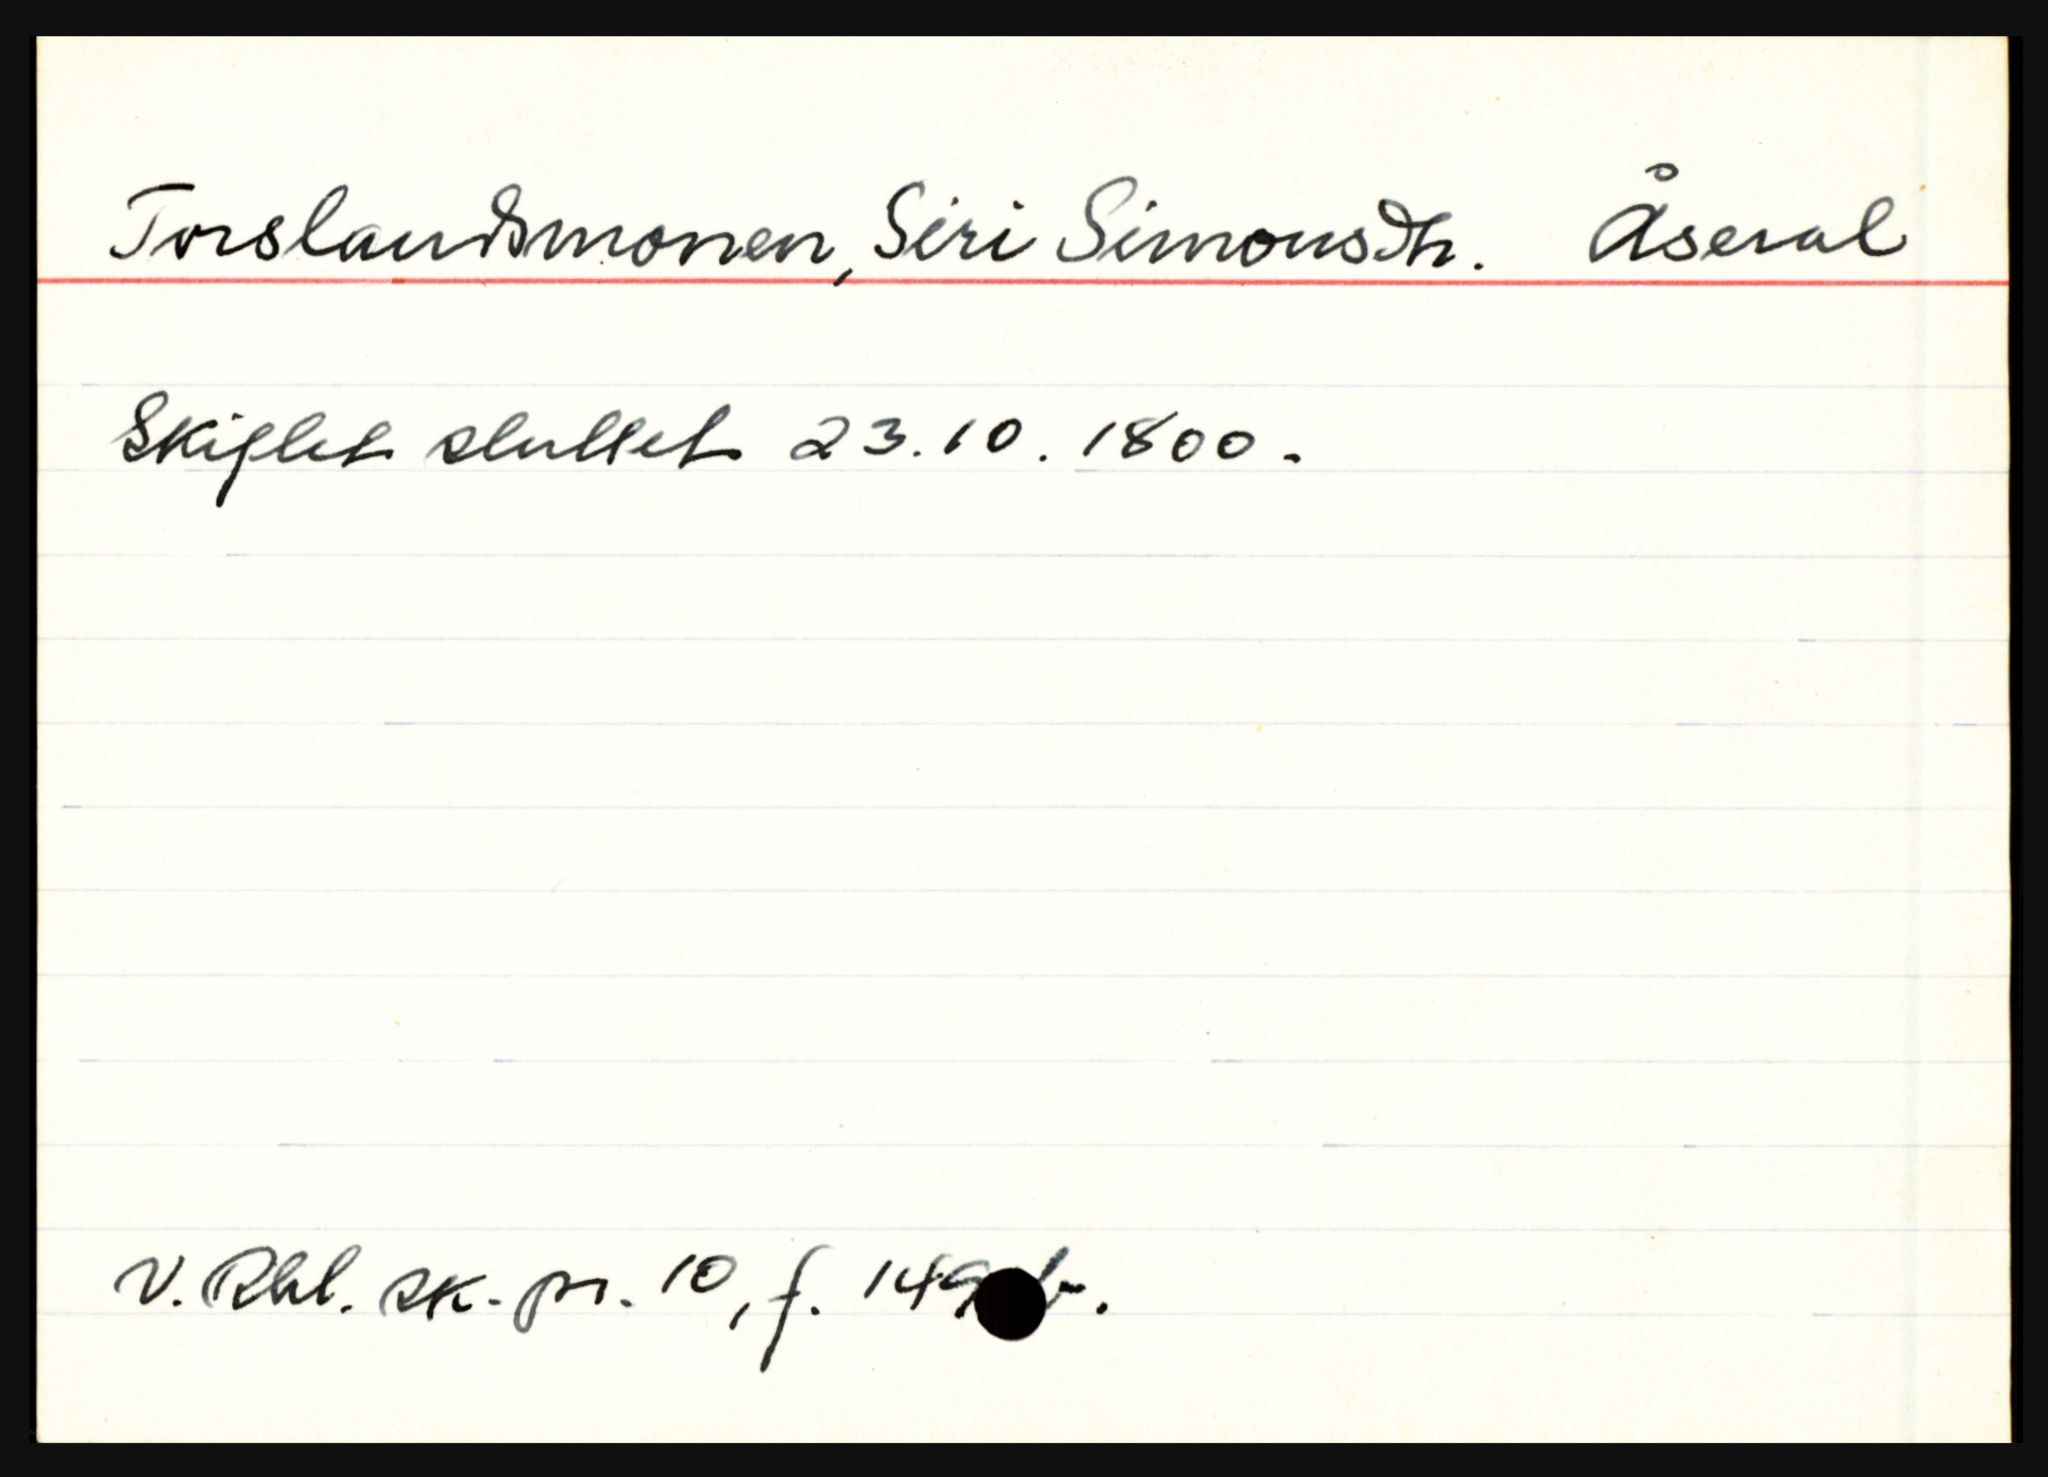 Torslandsmonen, Siri Simonsdtr. Åseral
Skiftet sluttet 23.10.1800.
V. Rbl. sk. pr. 10, f. 149 b.